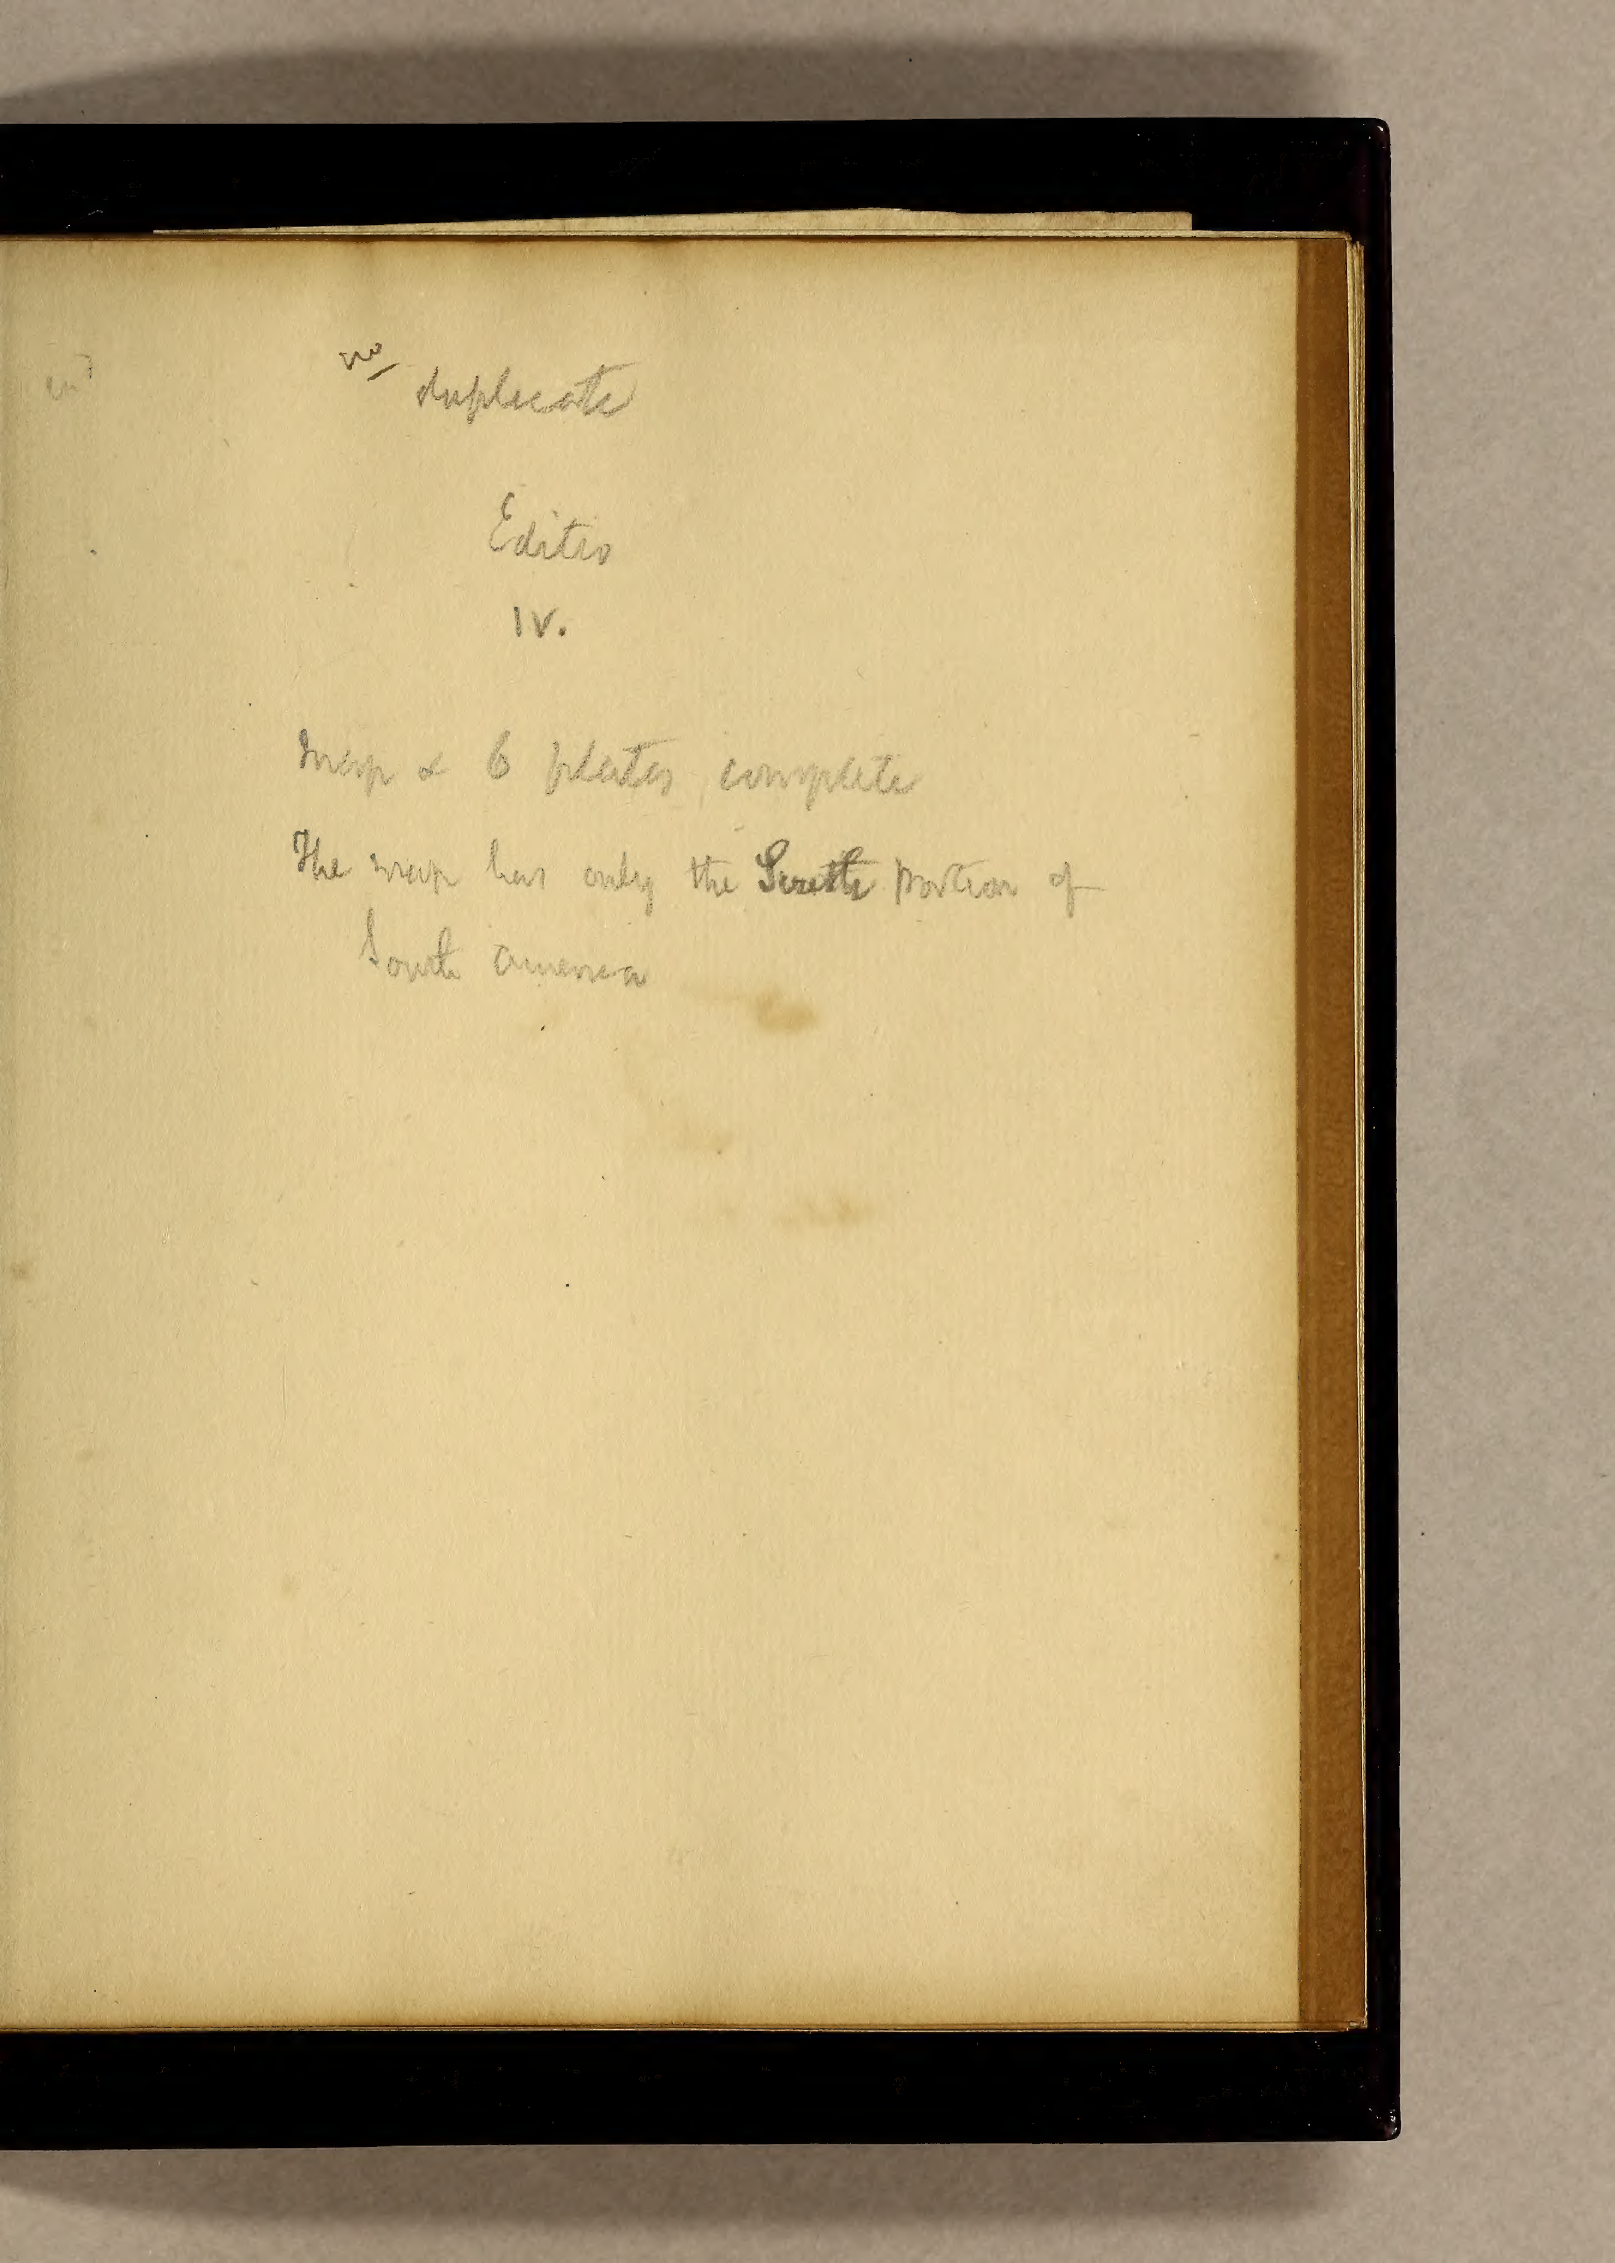 no duplicate
Editio
IV.
Map & 6 plates complete
The map has only the South portion of
South America